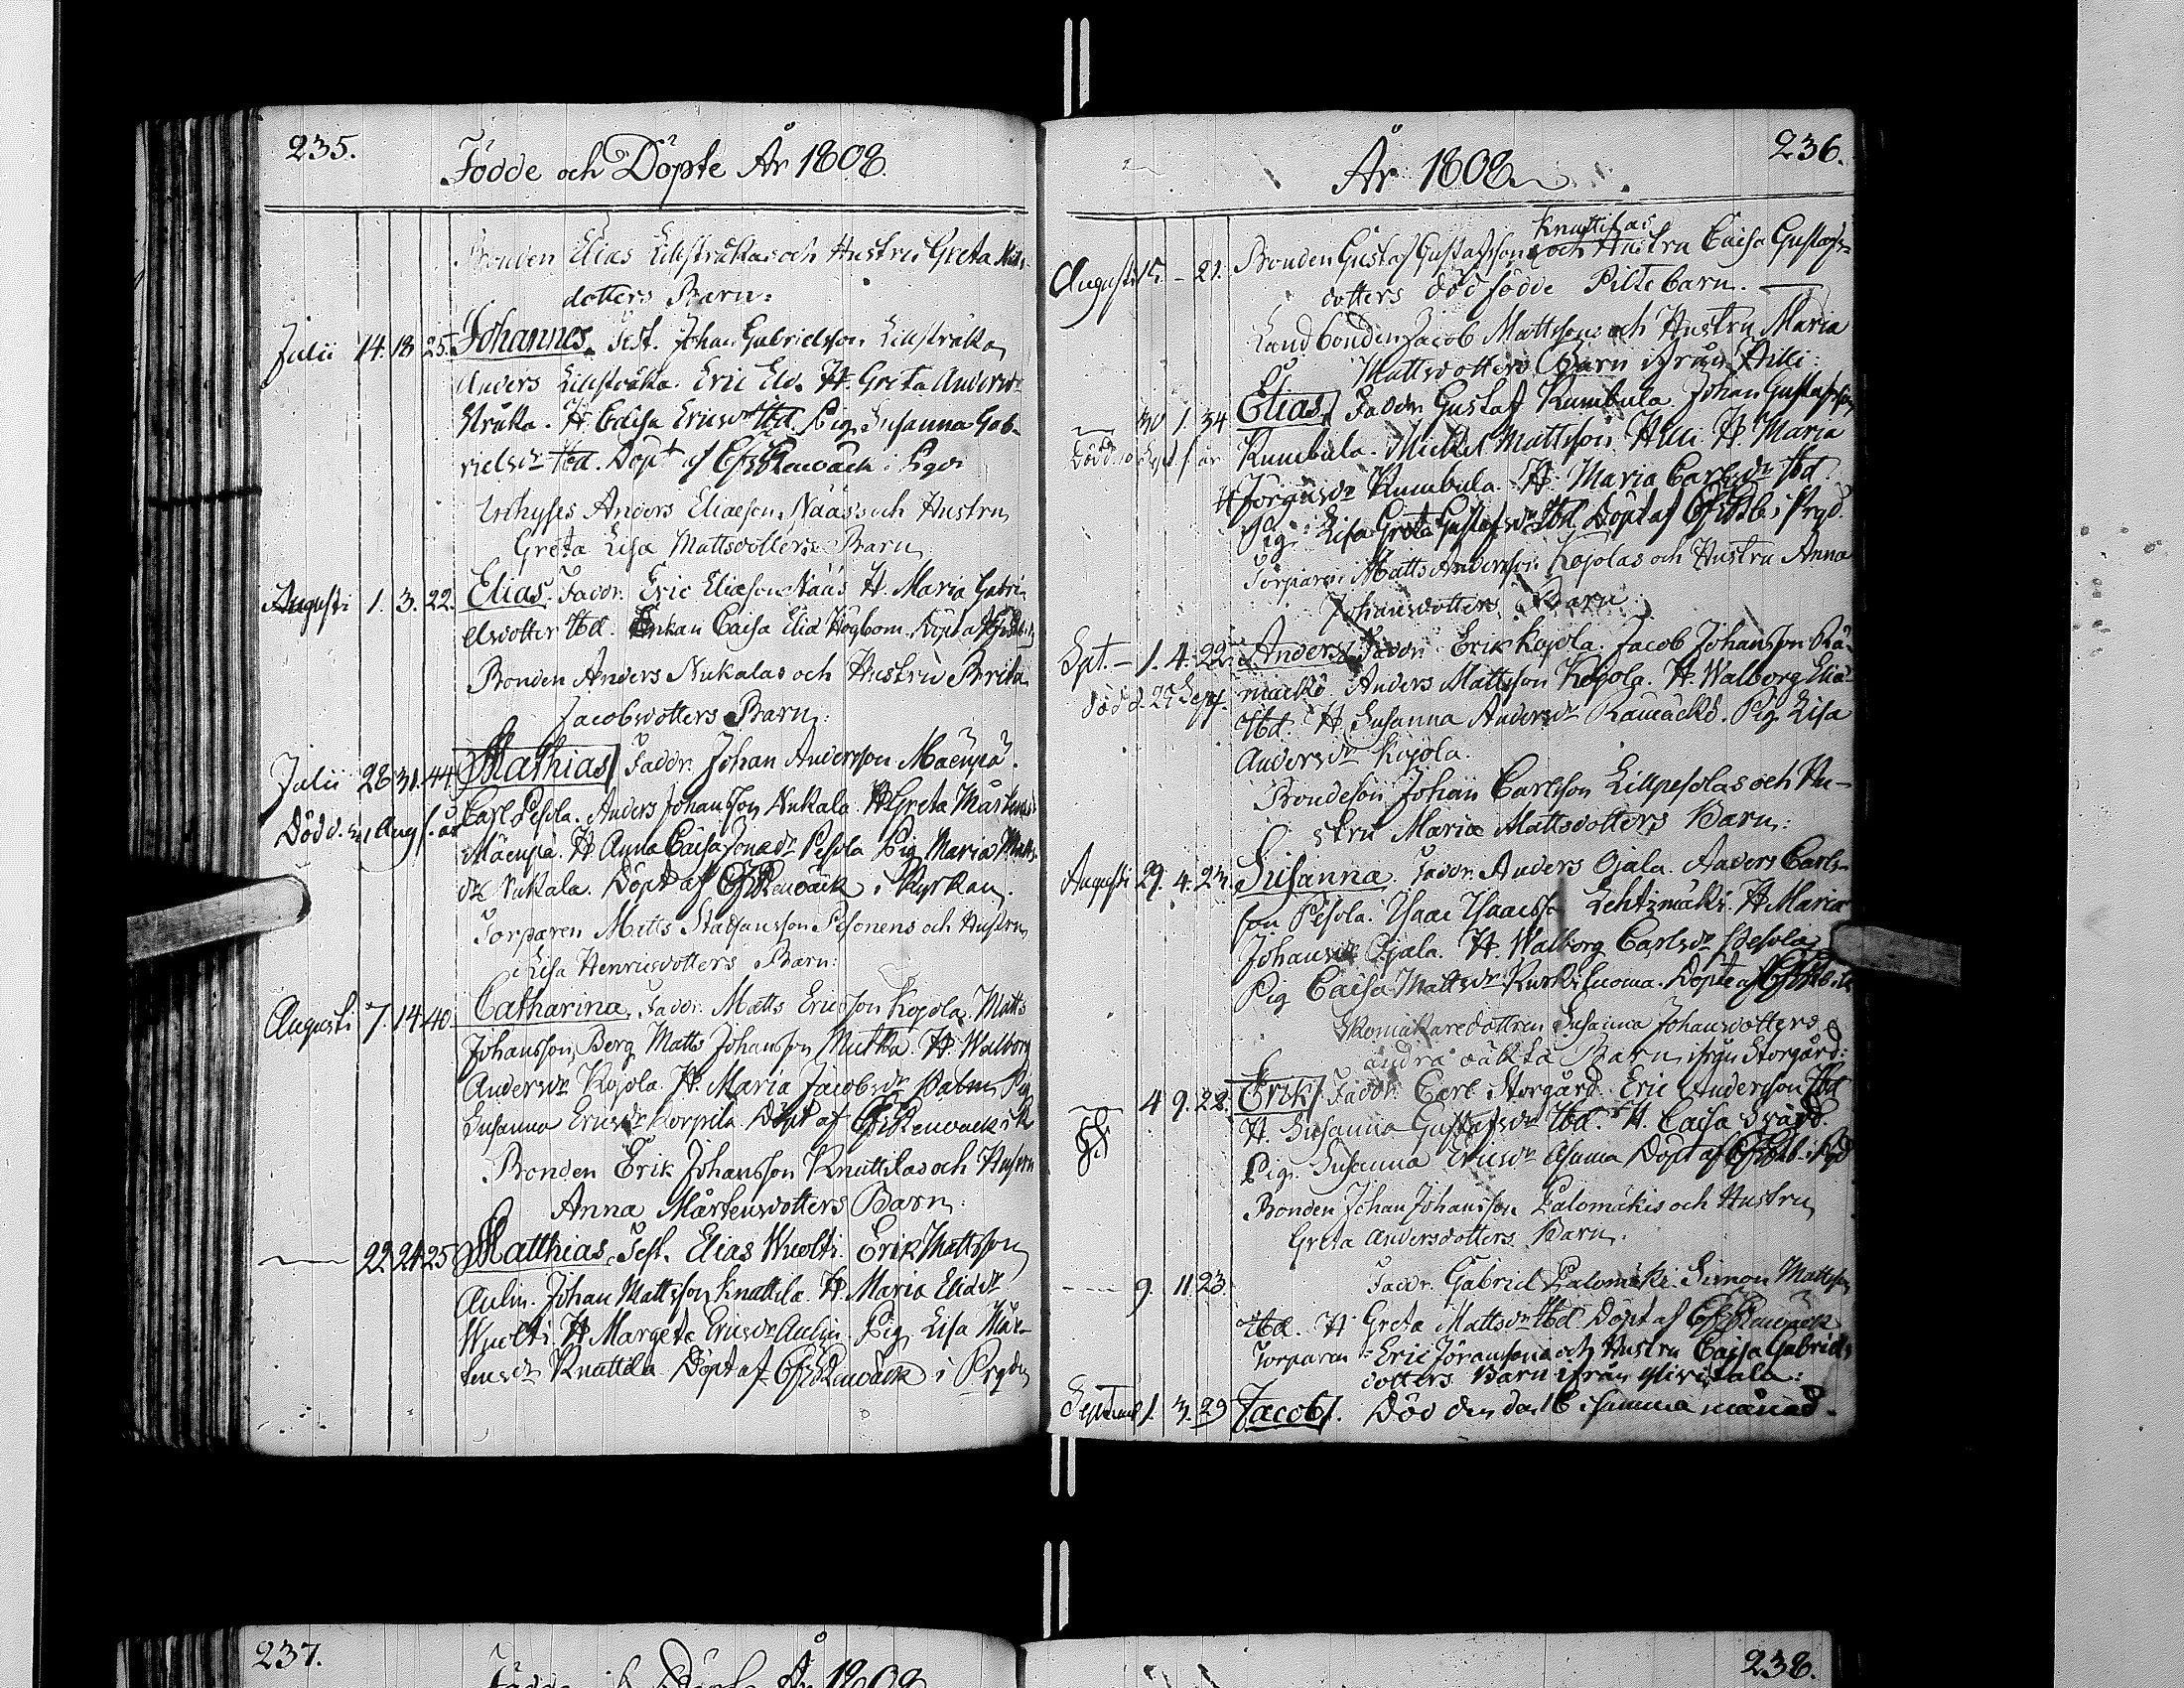 235.
Födde och Döpte År 1808.
Bonden Elias Lillstråkas och Hustru Greta
dotters Barn:
Julii 14. 18. 25. Johannes. Test. Johan Gabrielsson Lillstråka
Anders Lillstråka. Eric Eld. H. Greta Andersdr
Stråka. H. Caisa Ericsdr Ibd. Pig. Susanna Gab-
rielsdr Ibd. Döpt af Renbäck i
Inhyses Anders Eliaeson Nääs och Hustru
Greta Lisa Mattsdotters Barn
Augusti 1. 3. 22. Elias. Faddr. Eric Eliæson Nääs H. Maria Gabri-
elsdotter Ibd. Enkan Caisa Eliæ Högbom. Döpt af
Bonden Anders Nukalas och Hustru Brita
Jacobsdotters Barn:
Julii 28. 31. 44. Mathias Faddr. Johan Andersson Mäenpä.
Död d. 21 Aug. s. år Carl Pesola. Anders Johansson Nukala. H. Greta Mårtensdr
Mäenpä. H. Anna Caisa Jonædr Pesola Pig. Maria Matts-
dr Nukala. Döpt af Renbäck i Kyrkan.
Torparen Matts Staffansson Pesonens och Hustru
Lisa Henricsdotters Barn:
Augusti 7. 14. 40. Catharina. Faddr. Matts Ericsson Kojola. Matts
Johansson Berg Matts Johansson Mutka. H. Walborg
Andersdr Kojola. H. Maria Jacobsdr Palm Pig
Susanna Ericsdr Korpila. Döpt af Renbäck i K
Bonden Erik Johansson Knuttilas och Hustru
Anna Mårtensdotters Barn:
— 22. 24. 25 Matthias. Test. Elias Wuolti. Erik Mattsson
Aulin. Johan Mattsson Knuttila. H. Maria Eliædr
Wuolti. H. Margeta Ericsdr Aulin. Pig. Lisa Mår-
tensdr Knuttila Döpt af Renbäck i Prgdn
236.
År 1808.
Knuttilas
Augusti 15. - 21. Bonden Gustaf Gustafsson och Hustru Caisa Gustafs-
dotters dödfödde Piltebarn.
Landbonden Jacob Mattssons och Hustru Maria
Mattsdotters Barn ifrån Hilli:
— 30. 1. 34 Elias. Faddr. Gustaf Kumbula. Johan Gustafsson
Död d. 10 Sept. s. år Kumbula. Mickel Mattsson Hilli. H. Maria
Jörgensdr Kumbula. H. Maria Carlsdr Ibd.
Pig. Lisa Greta Gustafsdr Ibd Döpt af i Prgd.
Torparen Matts Andersson Kojolas och Hustru Anna
Johansdotters Barn:
Spt. — 1. 4. 22. Anders Faddr. Erik Kojola. Jacob Johansson Rä-
Död d. 29 Sept. mäckö. Anders Mattsson Kojola. H. Walborg Eliæ
Ibd. H. Susanna Andersdr Pig Lisa
Andersdr Kojola.
Bondeson Johan Carlsson Lillpesolas och Hu-
stru Maria Mattsdotters Barn:
Augusti 29. 4. 23. Susanna. Faddr. Anders Ojala. Anders Carls-
son Pesola. Isaac Isaacsson Lehtimäki. H. Maria
Johansdr Ojala. H. Walborg Carlsdr Pesola
Pig Caisa Mattsdr Döpt af
Skomakaredottren Susanna Johansdotters
andra oäkta Barn ifrån Storgård:
— 4. 9. 28. Erik Faddr. Carl Storgård. Eric Andersson Ibd
H. Susanna Gustafsdr Ibd. H. Caisa Svärd.
Pig. Susanna Ericsdr Asuma Döpt af i Pgd
Bonden Johan Johansson Palomäkis och Hustru
Greta Andersdotters Barn:
— 9. 11. 23. Faddr. Gabriel Palomäki. Simon Mattsson
Ibd. H. Greta Mattsdr Ibd Döpt af Renbäck
Torparen Eric Göranssons och Hustru Caisa Gabriels
dotters Barn ifrån Ylivitala:
Septemb. 1. 3. 29 Jacob. Död den 16 i samma månad.
237.
Födde och Döpte År 1808
238.